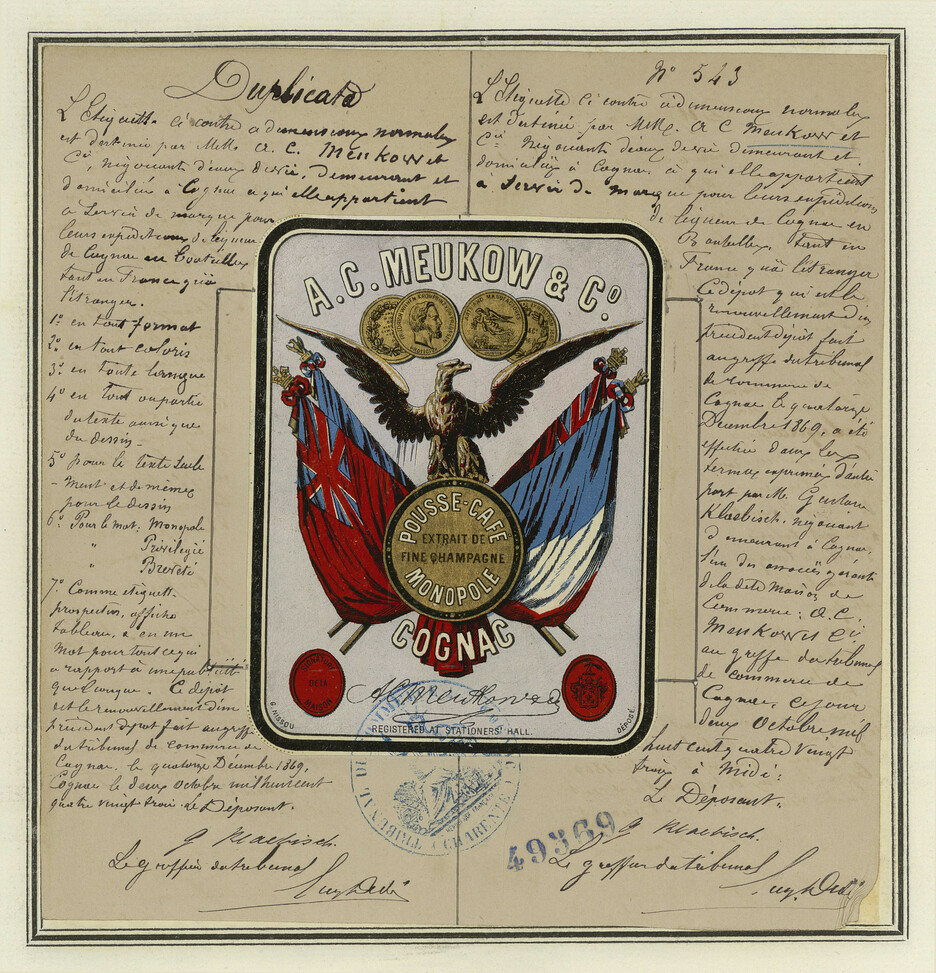 Duplicata
L'Etiquette ci contre a dimensions normales
est destinée par MMrs A. C. Meukow et
Cie, négociants d'eaux de vie, demeurant et
domiciliés à Cognac a qui elle appartient
a servir de marque pour
leurs expéditions de liqueur
de Cognac en Bouteilles
tant en France qu'à
l'étranger.
1o en tout format
2o en tout coloris
3o en toute langue
4o en tout ou partie
du texte ainsi que
du dessin -
5o pour le texte seule
- ment et de même
pour le dessin
6o Pour le mot. Monopole
" Privilégié
" Breveté
7o Comme etiquette
prospectus, affiche
tableau, & en un
Mot pour tout ce qui
a rapport à une publicité
quelconque. Ce dépôt
est le renouvellement d'un
précédent Dépôt fait au greffe
du tribunal de Commerce de
Cognac. le quatorze Décembre 1869.
Cognac le deux Octobre mil huit cent
quatre vingt trois. Le Déposant.
G Klaebisch.
Le greffier du tribunal
No 543
L'Etiquette ci contre a dimensions normales
est destinée par MMrs A C Meukow et
Cie Négociants d'eaux de vie demeurant et
domiciliés à Cognac, à qui elle appartient
à servir de marque pour leurs expéditions
de liqueur de Cognac en
Bouteilles, tant en
France qu'à l'étranger
Ce dépôt qui est le
renouvellement d'un
précédent dépôt fait
au greffe du tribunal
de commerce de
Cognac le quatorze
Décembre 1869, a été
effectué dans les
termes exprimés d'autre
part par M. Gustave
Klaebisch, négociant
demeurant à Cognac,
l'un des associés gérants
de la dite Maison de
Commerce: A. C.
Meukow et Cie
au greffe du tribunal
de commerce de
Cognac, ce jour
deux Octobre mil
huit cent quatre vingt
trois à Midi:
Le Déposant.
G Klaebisch.
Le greffier du tribunal
A. C. MEUKOW & Co.
POUSSE-CAFÉ
EXTRAIT DE
FINE CHAMPAGNE
MONOPOLE
COGNAC
SIGNATURE
DE LA
MAISON
A C Meukow & Co
G. NISSOU
DÉPOSÉ
REGISTERED AT STATIONERS' HALL.
TRIBUNAL DE COMMERCE
CHARENTE
49369